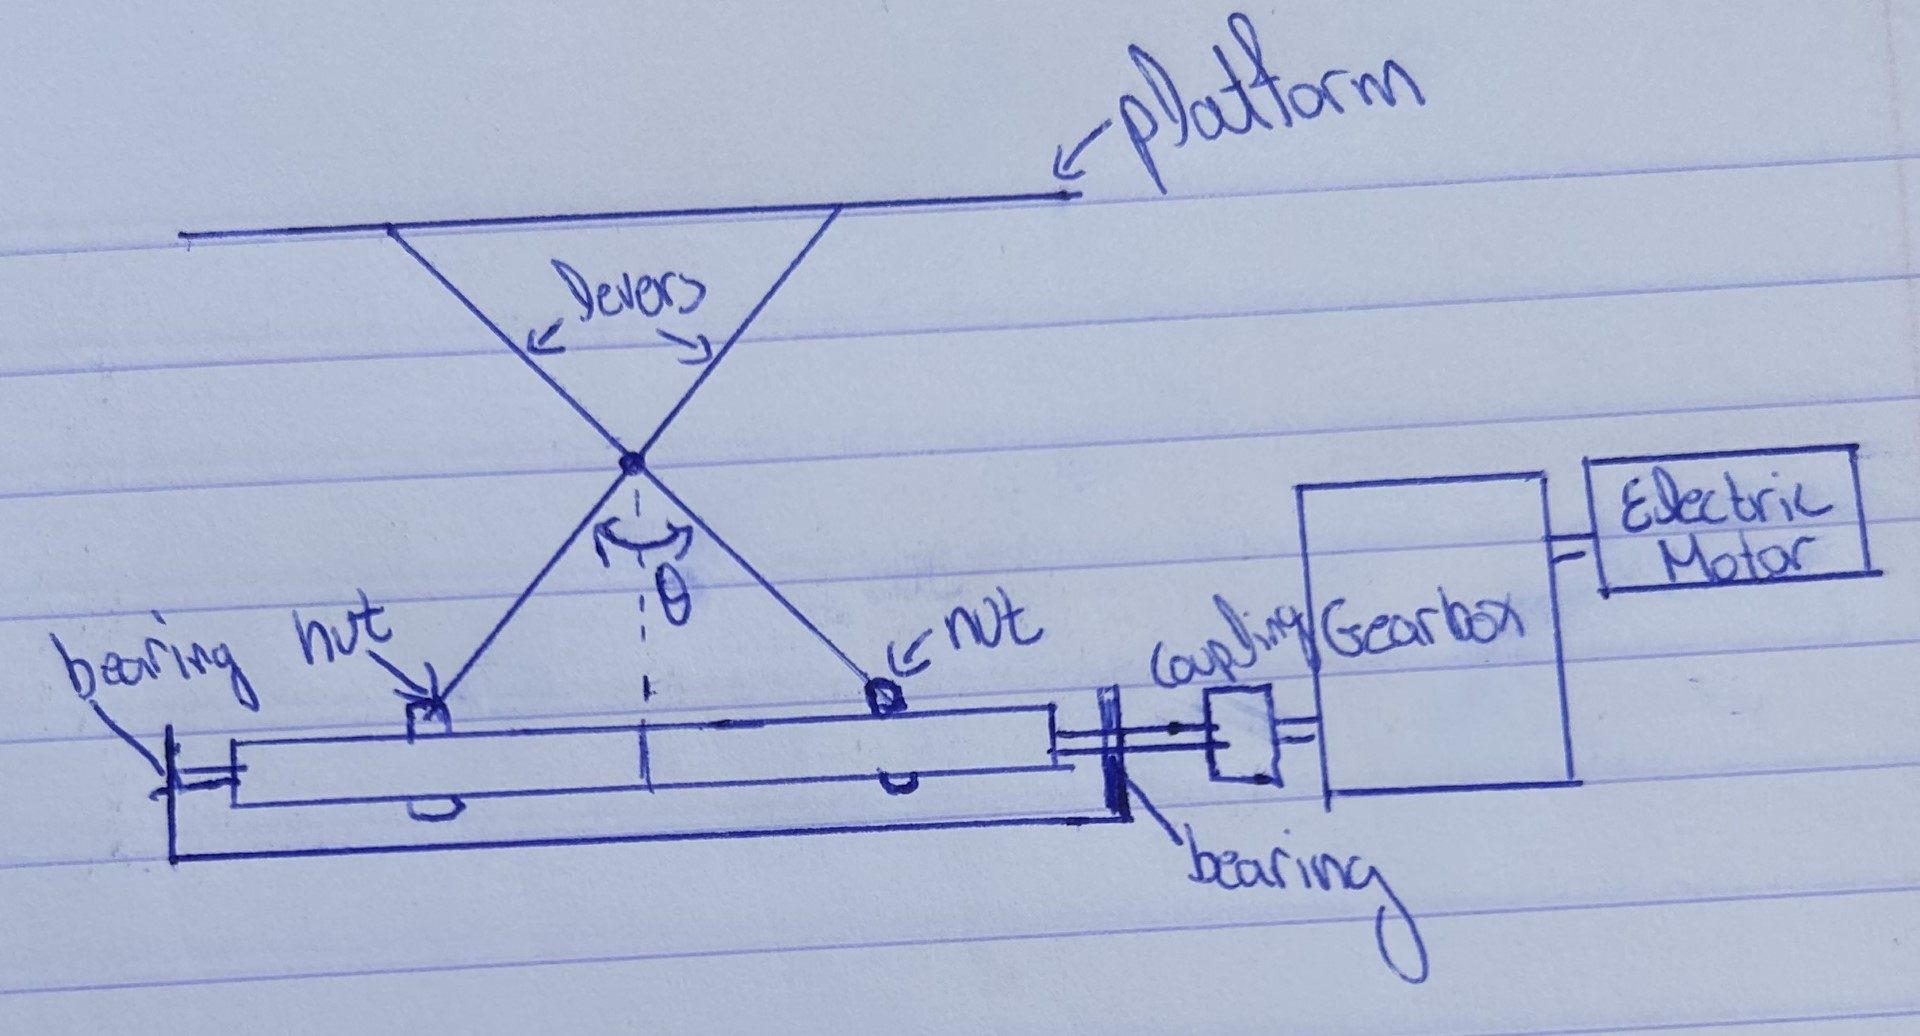 platform
Levers
θ
nut
nut
bearing
coupling
Gearbox
Electric
Motor
bearing